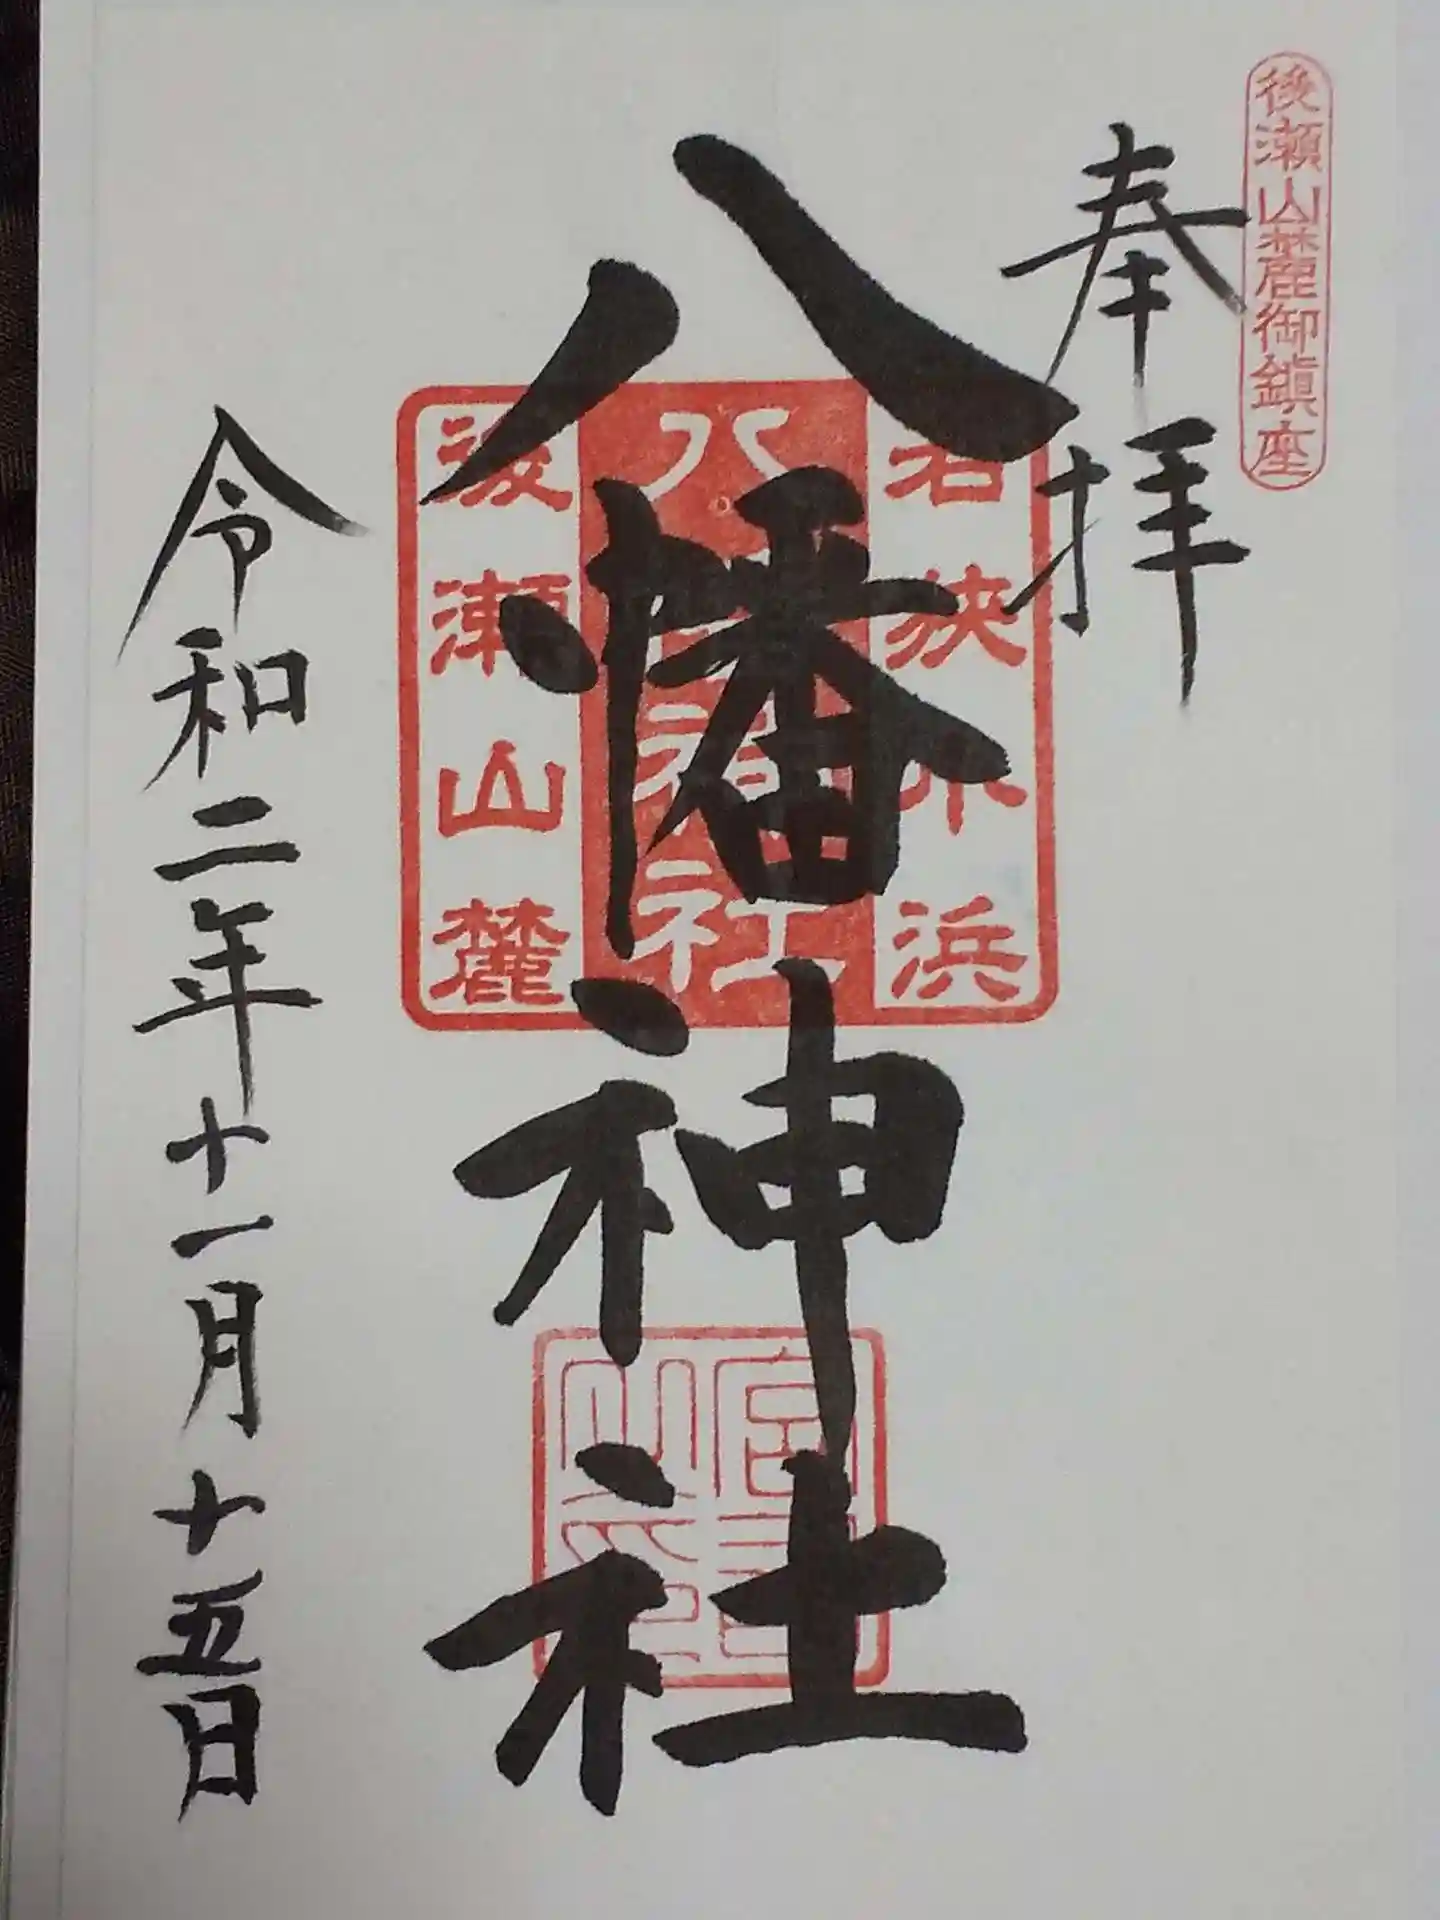 後瀬山麓御鎮座
奉拝
八幡神社
若狭小浜
八幡神社
後瀬山麓
宮司之印
令和二年十一月十五日